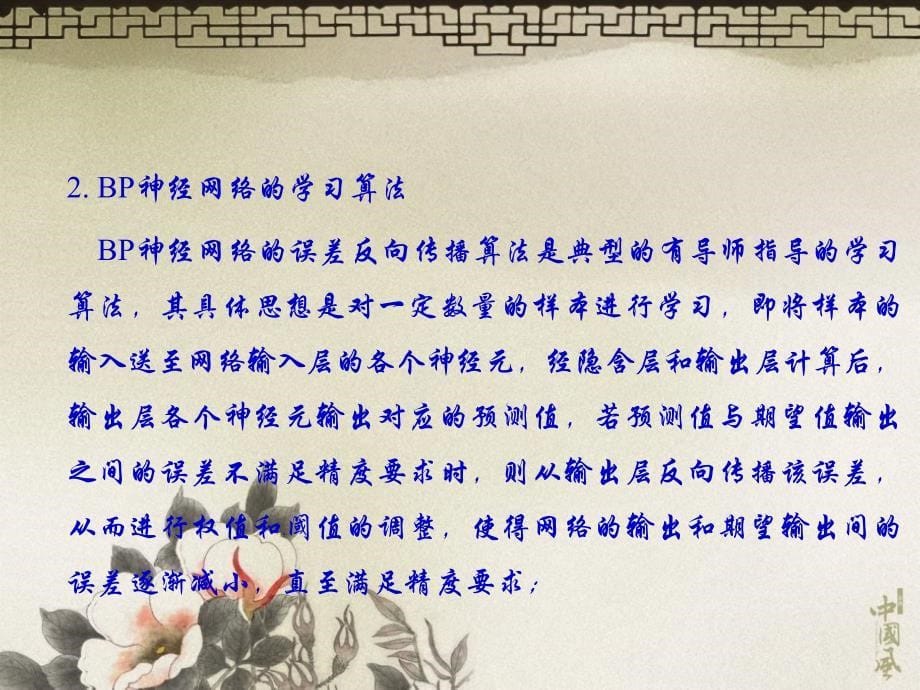 2. BP神经网络的学习算法
BP神经网络的误差反向传播算法是典型的有导师指导的学习
算法，其具体思想是对一定数量的样本进行学习，即将样本的
输入送至网络输入层的各个神经元，经隐含层和输出层计算后，
输出层各个神经元输出对应的预测值，若预测值与期望值输出
之间的误差不满足精度要求时，则从输出层反向传播该误差，
从而进行权值和阈值的调整，使得网络的输出和期望输出间的
误差逐渐减小，直至满足精度要求；
中國风